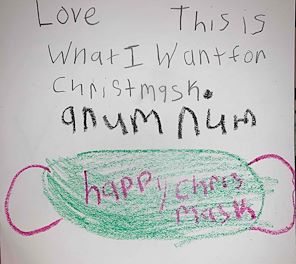 Love This is
What I Want for
christmask.
anum num
happy chris
mask